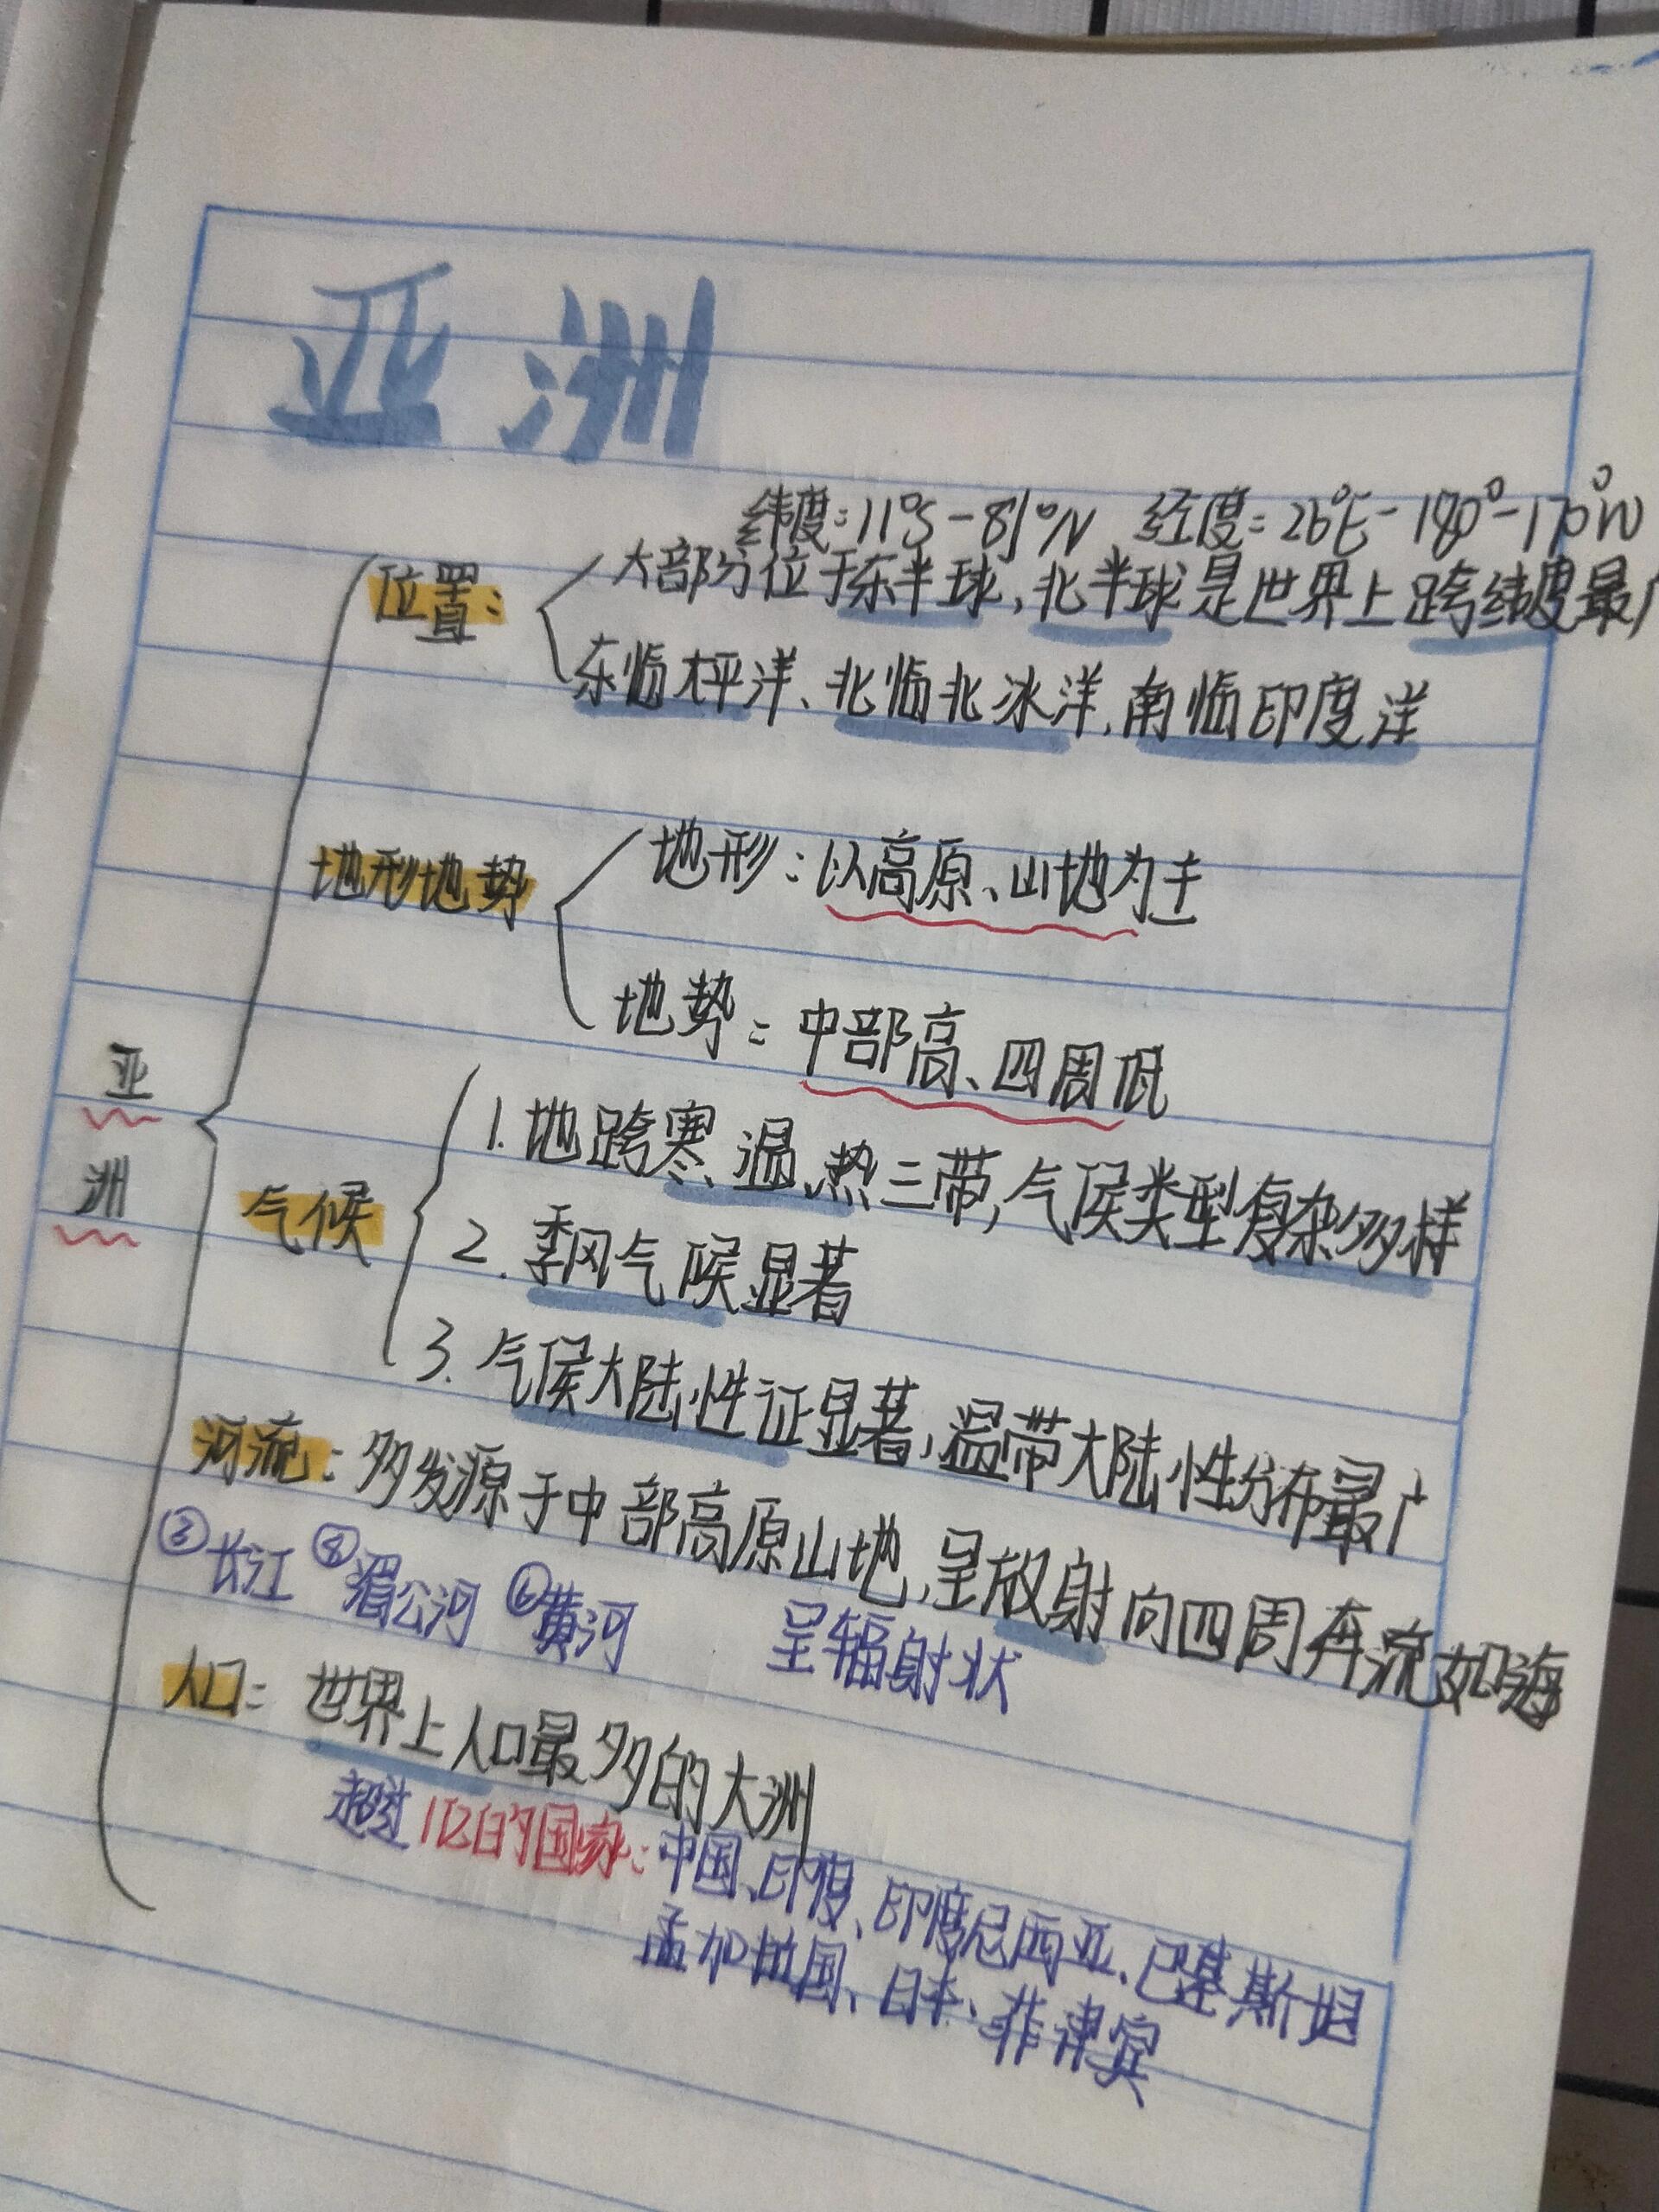 亚洲
纬度:11°S-81°N 经度:26°E-180°-170°W
位置: 大部分位于东半球,北半球是世界上跨纬度最广
东临太平洋、北临北冰洋,南临印度洋
地形地势 地形:以高原、山地为主
地势:中部高、四周低
亚洲
气候 1.地跨寒、温、热三带,气候类型复杂多样
2.季风气候显著
3.气候大陆性征显著,温带大陆性分布最广
河流:多发源于中部高原山地,呈放射向四周奔流如海
③长江 湄公河 ⑥黄河 呈辐射状
人口:世界上人口最多的大洲
超过1亿的国家:中国、印度、印度尼西亚、巴基斯坦
孟加拉国、日本、菲律宾